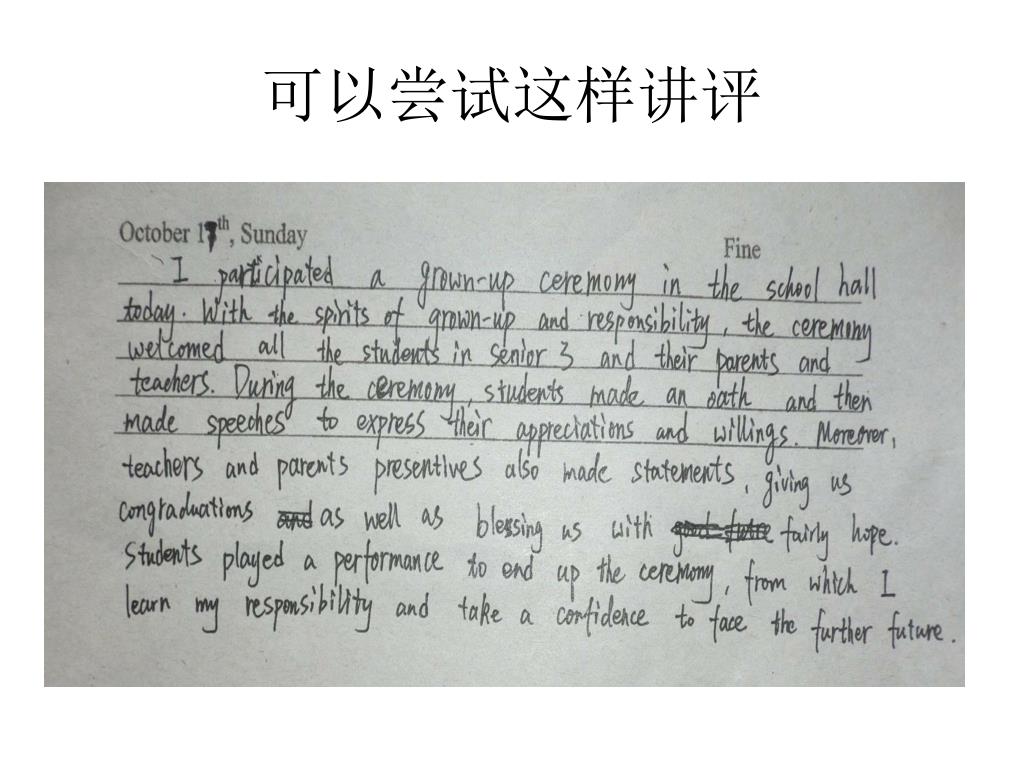 可以尝试这样讲评
October 17th, Sunday
Fine
I participated a grown-up ceremony in the school hall
today. With the spirits of grown-up and responsibility, the ceremony
welcomed all the students in senior 3 and their parents and
teachers. During the ceremony, students made an oath and then
made speeches to express their appreciations and willings. Moreover,
teachers and parents presentives also made statements, giving us
congraduations and as well as blessing us with fairly hope.
Students played a performance to end up the ceremony, from which I
learn my responsibility and take a confidence to face the further future.